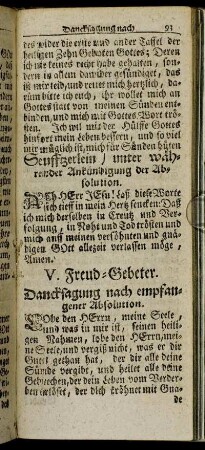 Dancksagung nach 91
des wider die erste und ander Taffel der
heiligen Zehn Geboten Gottes; Deren
ich nie keines recht habe gehalten, son-
dern in allem darwider gesündiget, das
ist mir leid, und reuet mich hertzlich, da-
rum bitte ich euch, ihr wollet mich an
Gottes statt von meinen Sünden ent-
binden, und mich mit Gottes Wort trö-
sten. Ich wil mit der Hülffe Gottes
hinfort mein Leben bessern, und so viel
mir müglich ist, mich für Sünden hüten
Seufftzerlein / unter wäh-
render Ankündigung der Ab-
solution.
ACh HErr JEsu! laß diese Worte
sich tieff in mein Hertz sencken: Daß
ich mich derselben in Creutz und Ver-
folgung, in Noht und Tod trösten und
mich auff meinen versöhnten und gnä-
digen GOtt allezeit verlassen möge,
Amen.
V. Freud-Gebeter.
Dancksagung nach empfan-
gener Absolution.
LObe den HErrn, meine Seele,
und was in mir ist, seinen heili-
gen Nahmen, lobe den HErrn, mei-
ne Seele, und vergiß nicht, was er dir
Guts gethan hat, der dir alle deine
Sünde vergibt, und heilet alle deine
Gebrechen, der dein Leben vom Verder-
ben erlöset, der dich kröhnet mit Gna-
de